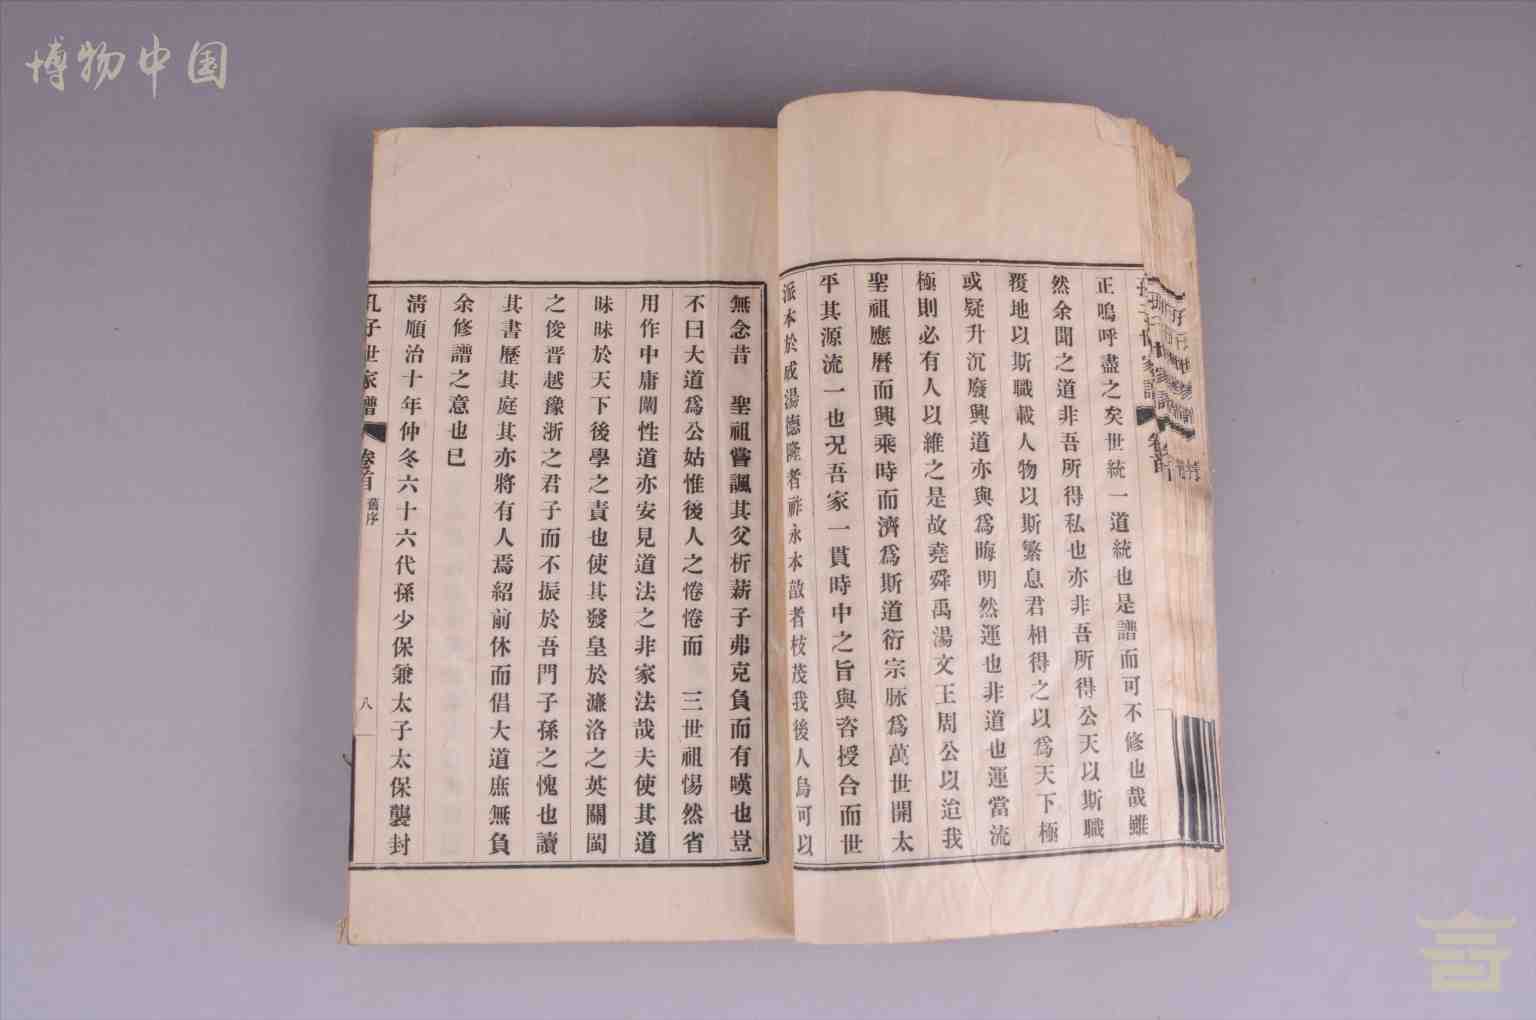 博物中国
正嗚呼盡之矣世統一道統也是譜而可不修也哉雖
然余聞之道非吾所得私也亦非吾所得公天以斯職
覆地以斯職載人物以斯繁息君相得之以為天下極
或疑升沉廢興道亦與為晦明然運也非道也運當流
極則必有人以維之是故堯舜禹湯文王周公以迨我
聖祖應曆而興乘時而濟為斯道衍宗脉為萬世開太
平其源流一也况吾家一貫時中之旨與咨授合而世
派本於成湯德隆者祚永本敨者枝茂我後人烏可以
無念昔 聖祖嘗諷其父析薪子弗克負而有嘆也豈
不曰大道為公姑惟後人之惓惓而 三世祖惕然省
用作中庸闡性道亦安見道法之非家法哉夫使其道
昧昧於天下後學之責也使其發皇於濂洛之英關閩
之俊晋越豫浙之君子而不振於吾門子孫之愧也讀
其書歷其庭其亦將有人焉紹前休而倡大道庶無負
余修譜之意也已
清順治十年仲冬六十六代孫少保兼太子太保襲封
孔子世家譜 卷首 舊序 八